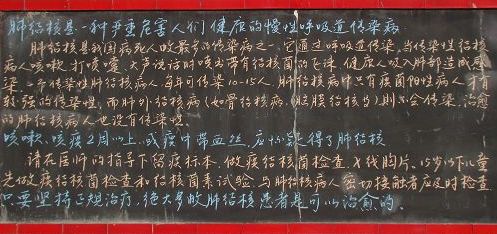 肺结核是一种严重危害人们健康的慢性呼吸道传染病
肺结核是我国病死人数最多的传染病之一,它通过呼吸道传染,当传染性结核
病人咳嗽、打喷嚏、大声说话时咳出带有结核菌的飞沫,健康人吸入肺部造成感
染,一个传染性肺结核病人,每年可传染10-15人,肺结核病中只有痰菌阳性病人才有
较强的传染性,而肺外结核病(如骨结核病、腹膜结核等)则不会传染,治愈
的肺结核病人也没有传染性
咳嗽、咳痰2周以上,或痰中带血丝,应怀疑是得了肺结核
请在医师的指导下留痰标本,做痰结核菌检查、X线胸片,15岁以下儿童
先做痰结核菌检查和结核菌素试验,与肺结核病人密切接触者应及时检查
只要坚持正规治疗,绝大多数肺结核患者是可以治愈的。